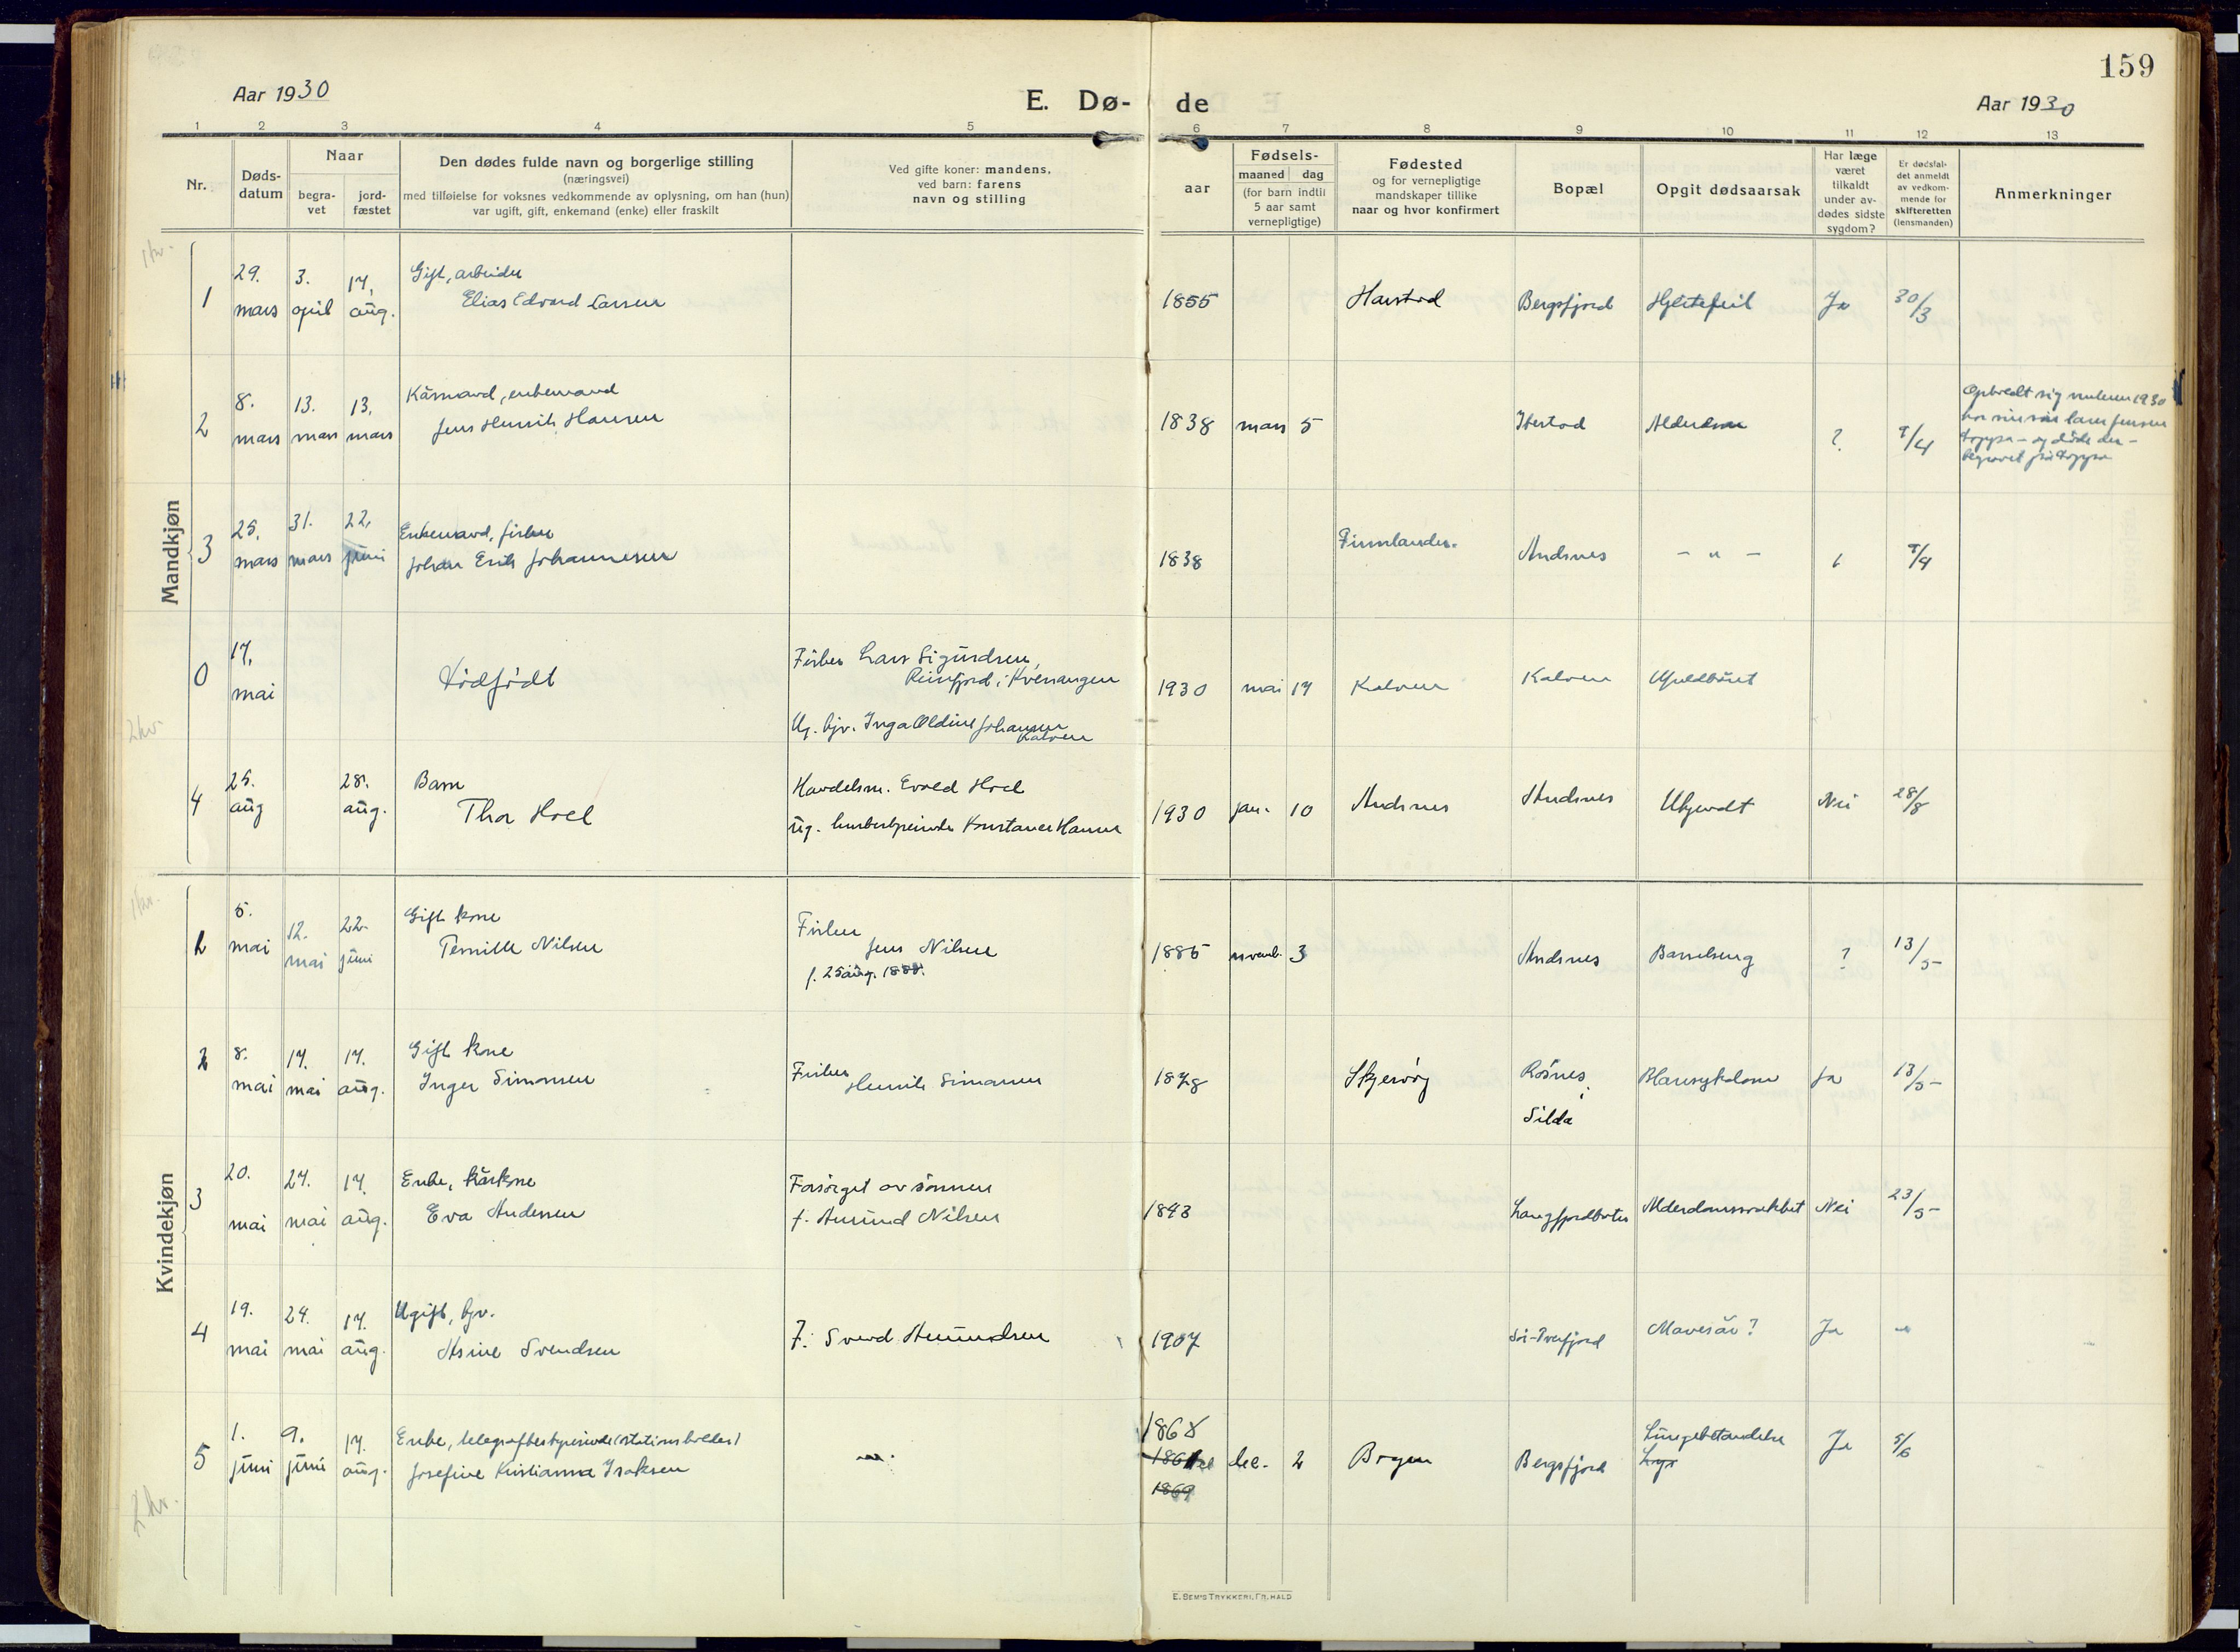 159
Aar 1930
E. Dø- de
Aar 1930
1 2 3 4 5 6 7 8 9 10 11 12 13
Nr.
Døds-
datum
Naar
begra-
vet
jord-
fæstet
Den dødes fulde navn og borgerlige stilling
(næringsvei)
med tilføielse for voksnes vedkommende av oplysning, om han (hun)
var ugift, gift, enkemand (enke) eller fraskilt
Ved gifte koner: mandens,
ved barn: farens
navn og stilling
aar
Fødsels-
maaned dag
(for barn indtil
5 aar samt
vernepligtige)
Fødested
og for vernepligtige
mandskaper tillike
naar og hvor konfirmert
Bopæl
Opgit dødsaarsak
Har læge
været
tilkaldt
under av-
dødes sidste
sygdom?
Er dødsfal-
det anmeldt
av vedkom-
mende for
skifteretten
(lensmanden)
Anmerkninger
Mandkjøn
1kr.
1 29. mars 3. april 17. aug.
Gift, arbeider
Elias Edvard Larsen
1855 Harstad Bergsfjord Hjertefeil Ja 30/3
2 8. mars 13. mars 13. mars
Kårmand, enkemand
Jens Henrik Hansen
1838 mars 5 Ibestad Alderdom ? 9/4
Opholdt sig vinteren 1930
hos sin sön Lars Jensen
Loppa – og döde der –
begravet på Loppa
3 25. mars 31. mars 22. juni
Enkemand, fisker
Johan Erik Johannesen
1838 Finnlander. Andsnes – " – 9/4
0 17. mai
Dödfödt
Fisker Lars Sigurdsen,
Reinfjord i Kvenangen
Ug. tjv. Inga Oldine Johansen
Kalven
1930 mai 17 Kalven Kalven Ufuldbåret
2kr
4 25. aug 28. aug.
Barn
Thor Hoel
Handelsm. Evald Hoel
ug. Konstance Hansen
1930 jan. 10 Andsnes Andsnes Ukjendt Nei 28/8
Kvindekjøn
1kr.
1 5. mai 12. mai 22. juni
Gift kone
Pernille Nilsen
Fisker
Jens Nilsen
f. 25 aug. 1888.
1885 novemb. 3 Andsnes Barselseng ? 13/5
2 8. mai 17. mai 17. aug.
Gift kone
Inger Simonsen
Fisker
Henrik Simonsen
1878 Skjervöy Rösnes, Silda Blæresykdom Ja 13/5
3 20. mai 27. mai 17. aug.
Enke, kårkone
Eva Andersen
Forsörget av sönnen
f. Amund Nilsen
1843 Langfjordbotn Alderdomssvakhet Nei 23/5
4 19. mai 24. mai 17. aug.
Ugift, tjv.
Asine Svendsen
F: Svend Amundsen
1907 Sör-Tverfjord Mavesår? Ja
5 1. juni 9. juni 17. aug.
Enke, telegrafbestyrerinde (stationsholder)
Josefine Kristianna Isaksen
1868
1861
1869
dec. 2 Bogen Bergsfjord Lungebetændelse Ja 5/6
2kr.
E. SEM'S TRYKKERI, FR. HALD